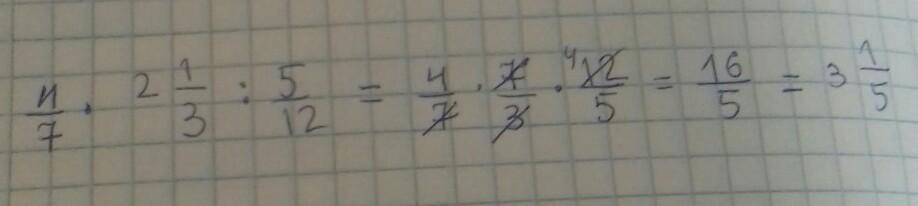 4/7 · 2 1/3 : 5/12 = 4/7 · 7/3 · ⁴12/5 = 16/5 = 3 1/5